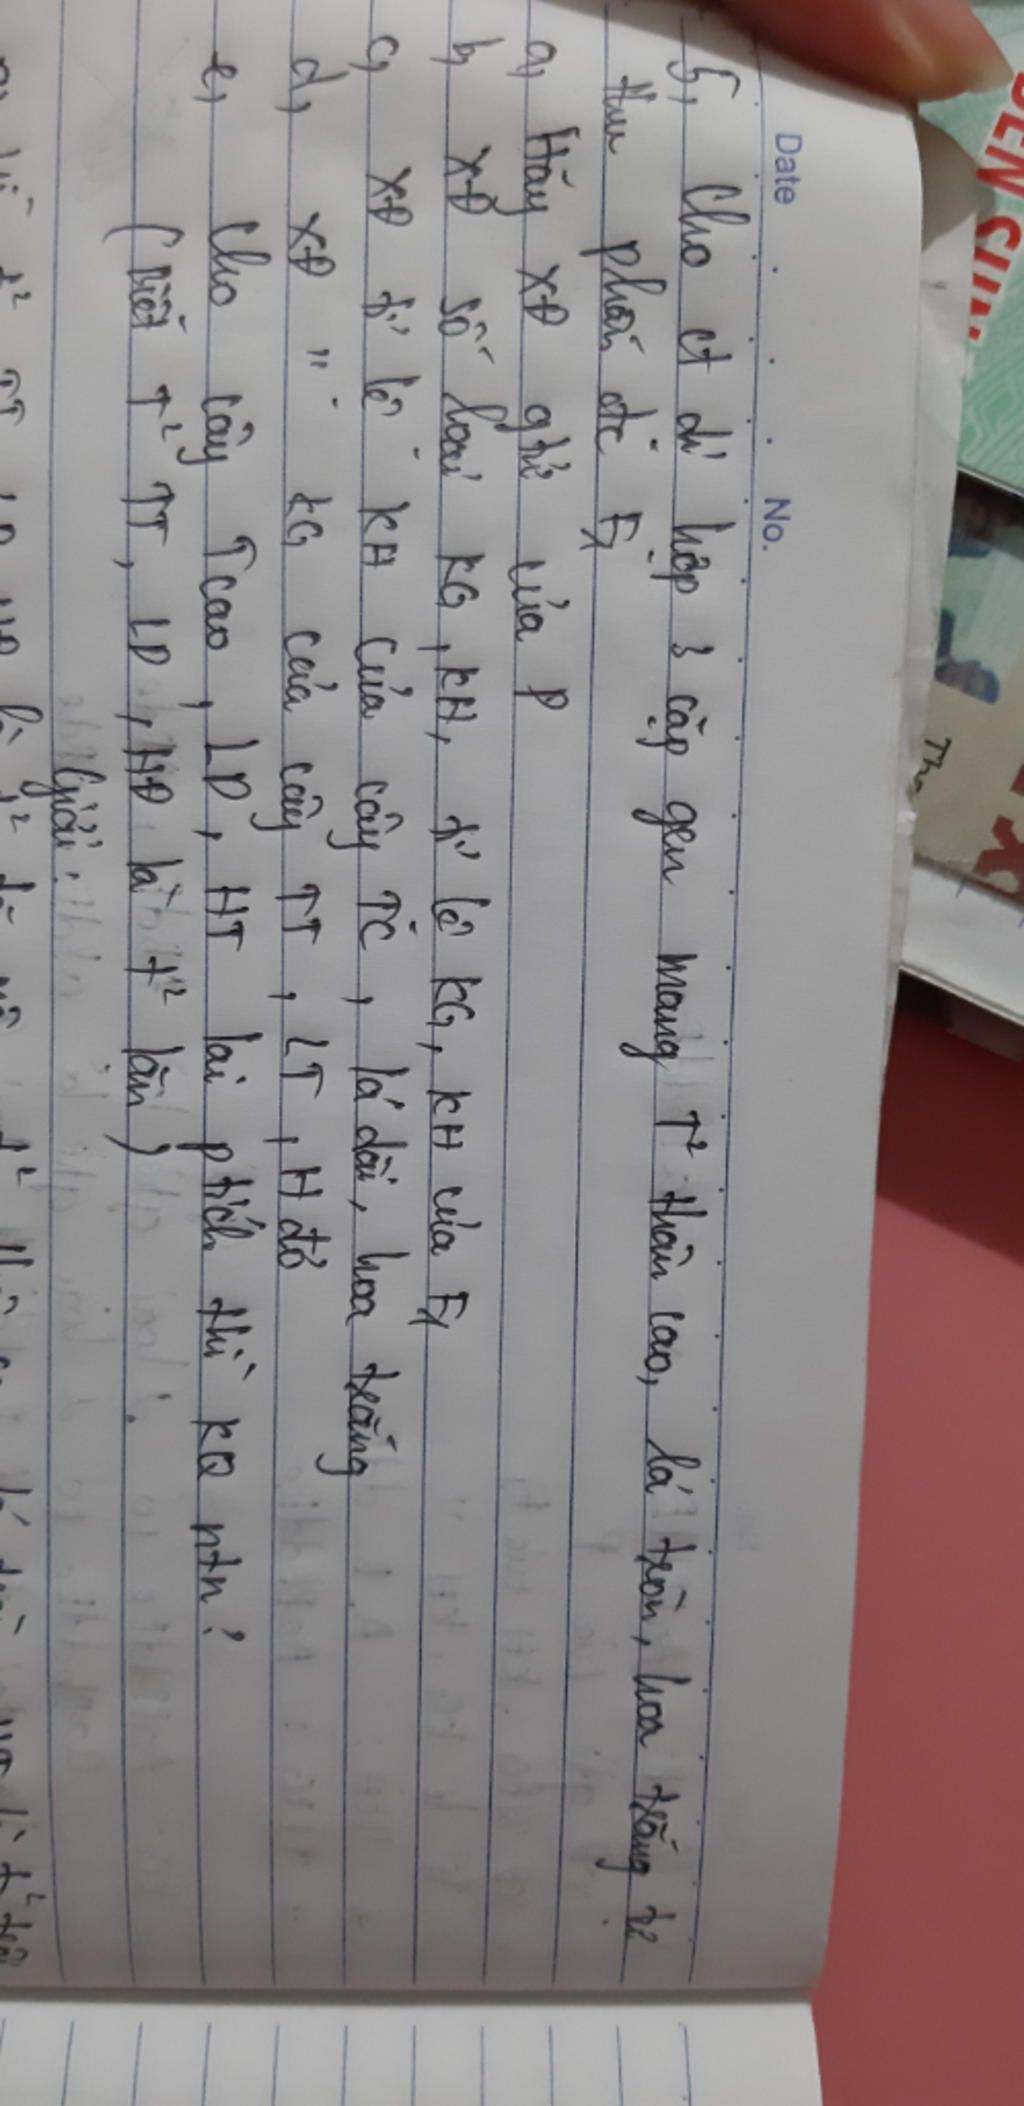 Date No.
5, Cho ct dị hợp 3 cặp gen mang T² thân cao, lá tròn, hoa trắng tự
thụ phấn đc F1
a, Hãy XĐ ghi của P
b, XĐ số loại KG, KH, tỉ lệ KG, KH của F1
c, XĐ tỉ lệ KH của cây TC, lá dài, hoa trắng
d, XĐ " KG của cây TT, LT, H đỏ
e, Cho cây Tcao, LD, HT lai ptích thì KQ ntn?
(Biết T² TT, LD, HĐ là t² lặn)
Giải: